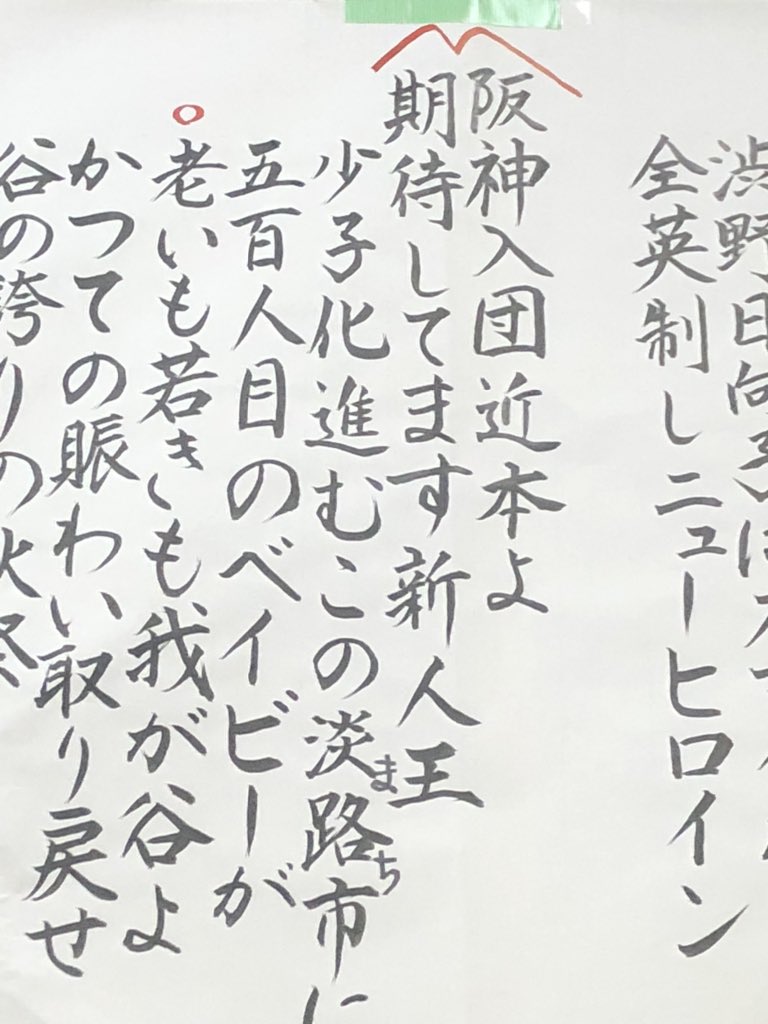 渋野日向子は
全英制しニューヒロイン
阪神入団近本よ
期待してます新人王
少子化進むこの淡路市に
まち
五百人目のベイビーが
老いも若きも我が谷よ
かつての賑わい取り戻せ
谷の誇りの火祭